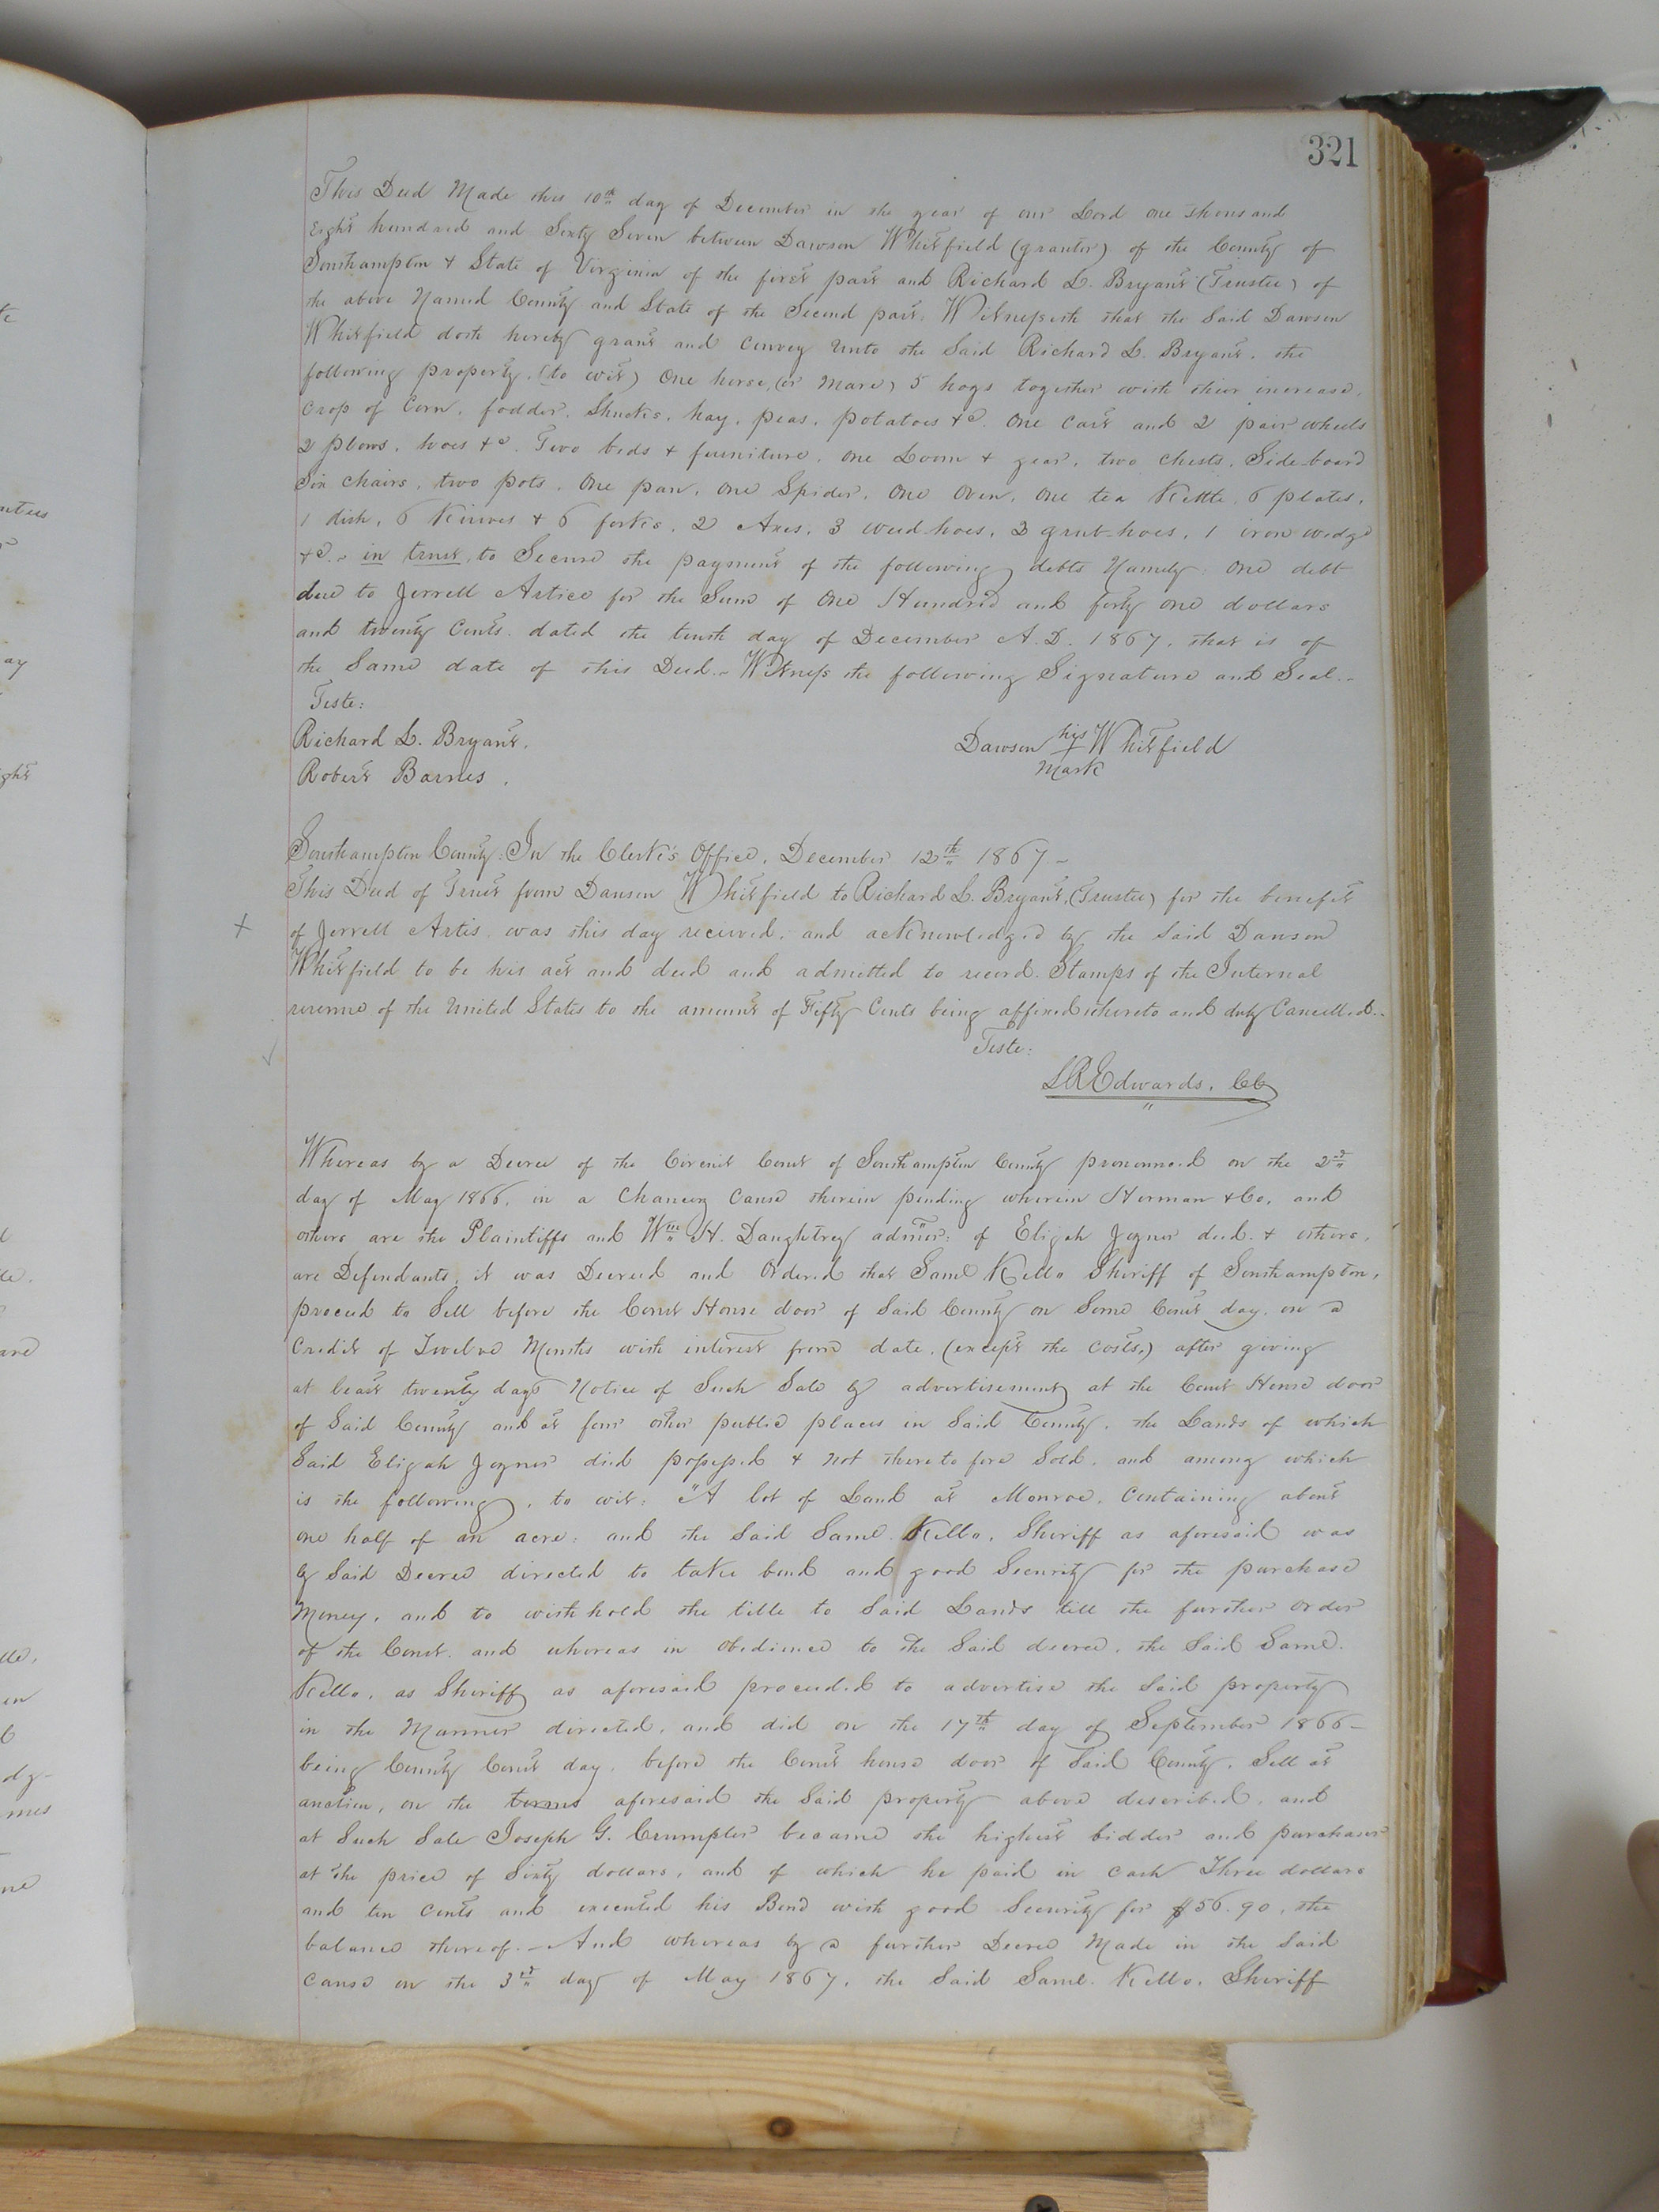 321
This Deed Made this 10th day of December in the year of our Lord one thousand
Eight hundred and Sixty Seven between Dawson Whitfield (grantor) of the County of
Southampton & State of Virginia of the first part and Richard L. Bryant (Trustee) of
the above Named County and State of the Second part: Witnesseth that the Said Dawson
Whitfield doth hereby grant and convey Unto the Said Richard L. Bryant, the
following property, (to wit) One horse, (or Mare) 5 hogs together with their increase,
crop of Corn, fodder, Shucks, hay, peas, potatoes &c. One Cart and 2 pair wheels
2 plows, hoes &c. Two beds & furniture, one Loom & gear, two Chests, Side-board
Six chairs, two pots, One pan, one Spider, One Oven, one tea Kettle, 6 plates,
1 dish, 6 Knives & 6 forks, 2 Axes, 3 weed-hoes, 3 grub-hoes, 1 iron wedge
&c. - in trust, to Secure the payment of the following debts Namely: One debt
due to Jerrell Artice for the Sum of One Hundred and forty one dollars
and twenty Cents. dated the tenth day of December A.D. 1867, that is of
the Same date of this Deed. - Witness the following Signature and Seal. -
Teste:
Richard L. Bryant.
Robert Barnes.
Dawson his + mark Whitfield
Southampton County: In the Clerk's Office, December 12th 1867 -
This Deed of Trust from Dawson Whitfield to Richard L. Bryant, (Trustee) for the benefit
+ of Jerrell Artis, was this day received, and acknowledged by the Said Dawson
Whitfield to be his act and deed and admitted to record. Stamps of the Internal
revenue of the United States to the amount of Fifty Cents being affixed thereto and duly Cancelled. -
Teste:
LR Edwards, CC
Whereas by a Decree of the Circuit Court of Southampton County pronounced on the 2nd
day of May 1866, in a Chancery Cause therein pending wherein Herman & Co. and
others are the Plaintiffs and Wm H. Daughtrey admor: of Elijah Joyner decd. & others,
are Defendants, it was Decreed and Ordered that Saml Kello Sheriff of Southampton,
proceed to Sell before the Court House door of Said County on Some Court day, on a
Credit of Twelve Months with interest from date, (except the costs,) after giving
at least twenty days Notice of Such Sale by advertisement at the Court House door
of Said County and at four other public places in Said County, the Lands of which
Said Elijah Joyner died possessed & not theretofore Sold, and among which
is the following, to wit: "A lot of Land at Monroe, Containing about
one half of an acre: and the Said Saml. Kello, Sheriff as aforesaid was
by Said Decree directed to take bond and good Security for the purchase
Money, and to withhold the title to Said Lands till the further Order
of the Court. and whereas in Obedience to the Said decree, the Said Saml.
Kello, as Sheriff as aforesaid proceeded to advertise the Said property
in the Manner directed, and did on the 17th day of September 1866 -
being County Court day, before the Court house door of Said County, Sell at
auction, on the terms aforesaid the Said property above described, and
at Such Sale Joseph G. Crumpler became the highest bidder and purchaser
at the price of Sixty dollars, and of which he paid in Cash Three dollars
and ten Cents and executed his Bond with good Security for $56.90, the
balance thereof. - And whereas by a further Decree Made in the Said
Cause on the 3rd day of May 1867, the Said Saml. Kello, Sheriff